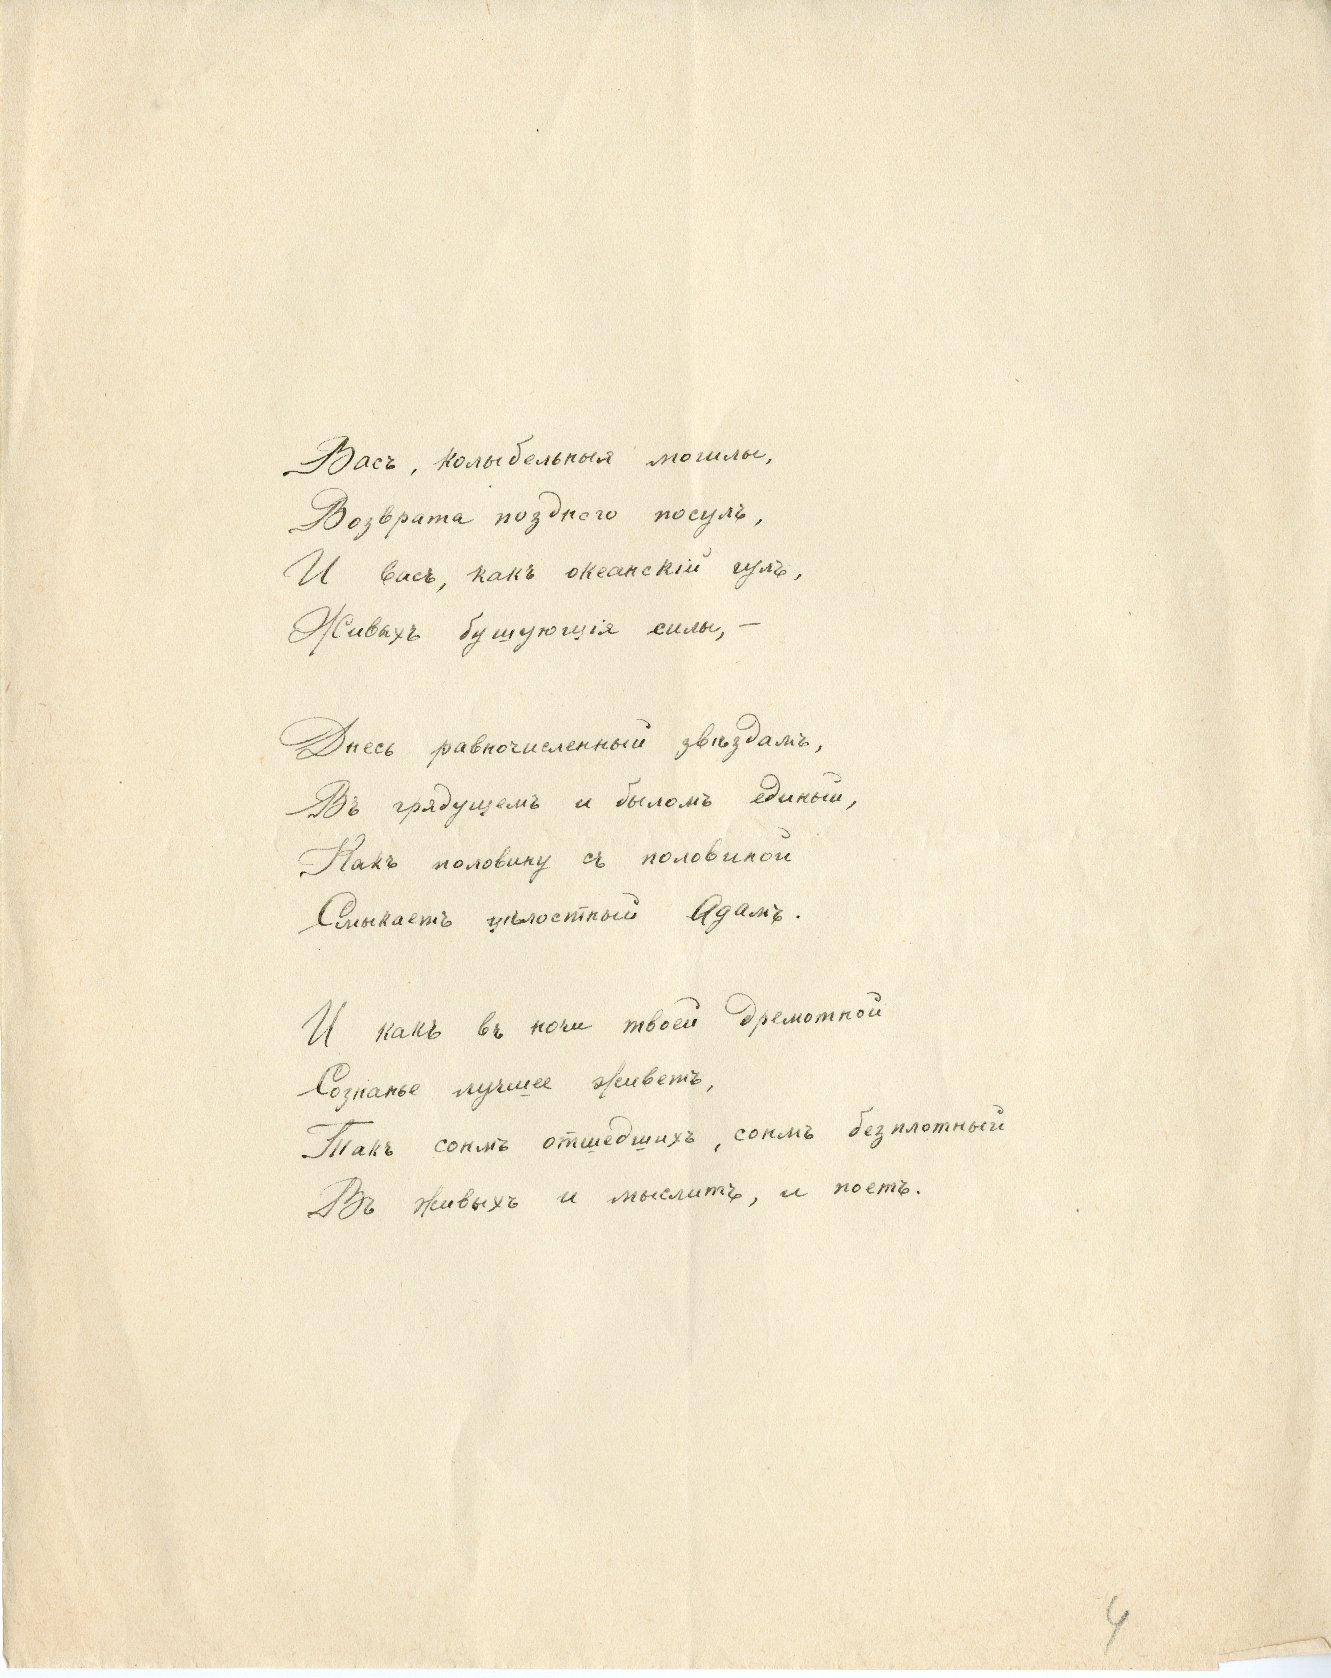 Васъ, колыбельныя могилы,
Возврата позднего посулъ,
И васъ, какъ океанскій гулъ,
Живыхъ бушующія силы,—
Днесь равночисленный звѣздамъ,
Въ грядущемъ и быломъ единый,
Какъ половину съ половиной
Смыкаетъ цѣлостный Адамъ.
И какъ въ ночи твоей дремотной
Сознанье лучшее живетъ,
Такъ сонмъ отшедшихъ, сонмъ безплотный
Въ живыхъ и мыслитъ, и поетъ.
4